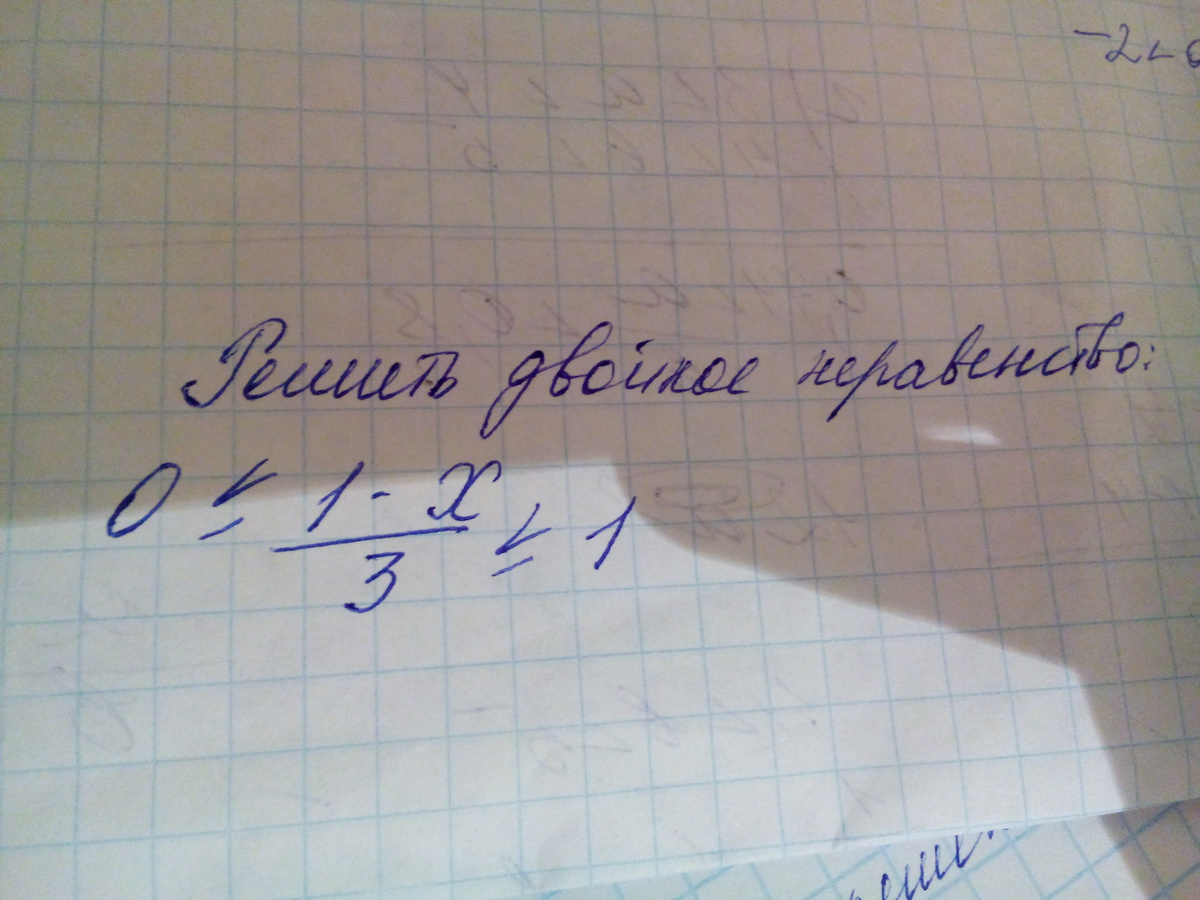 -2<
Решить двойное неравенство:
0 ≤ (1-x)/3 ≤ 1